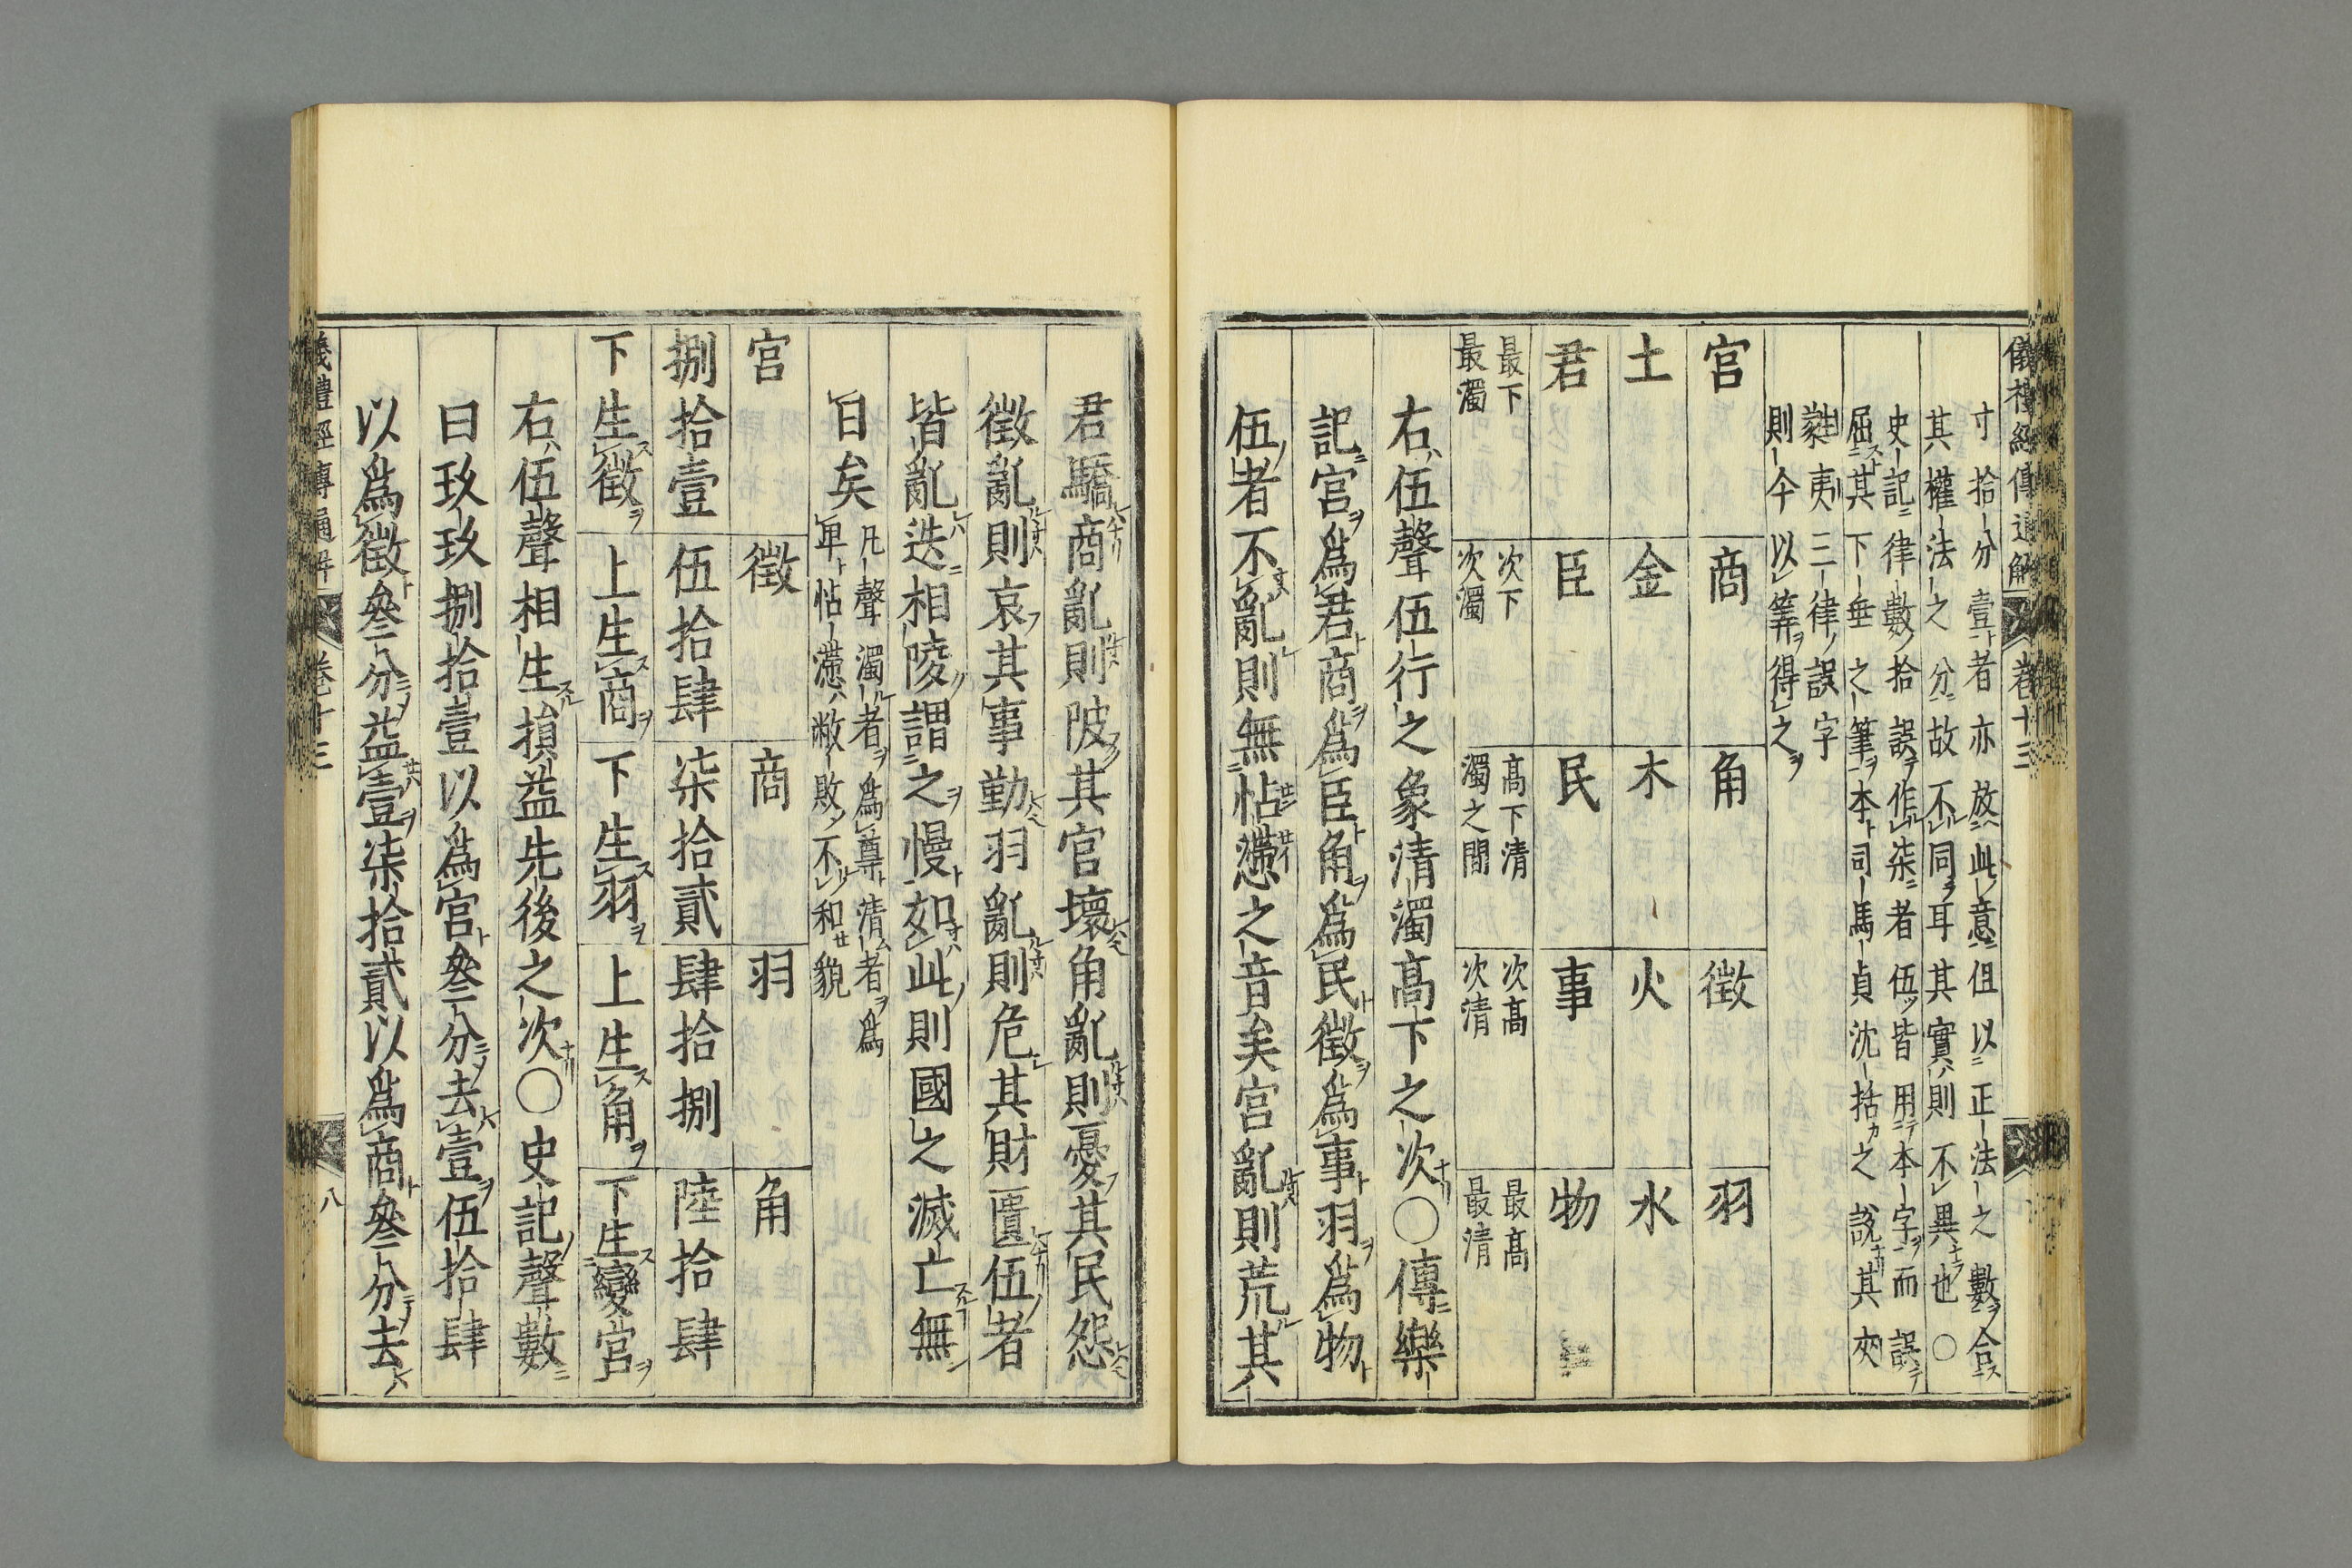 儀禮經傳通解 卷十三
寸拾分壹者亦放此意但以正法之數合
其權法之分故不同耳其實則不異也〇
史記律數拾誤作柒者伍皆用本字而誤
屈其下垂之筆本司馬貞沈括之說其夾
則今以筭得之
宮 商 角 徵 羽
土 金 木 火 水
君 臣 民 事 物
最下 次下 高下清 次高 最高
最濁 次濁 濁之間 次清 最清
右伍聲伍行之象清濁高下之次〇傳樂
記宮爲君商爲臣角爲民徵爲事羽爲物
伍者不亂則無怗懘之音矣宮亂則荒其
君驕商亂則陂其官壞角亂則憂其民怨
徵亂則哀其事勤羽亂則危其財匱伍者
皆亂迭相陵謂之慢如此則國之滅亡無
日矣
凡聲濁者爲尊清者爲
卑怗懘敝敗不和貌
宮 徵 商 羽 角
捌拾壹 伍拾肆 柒拾貳 肆拾捌 陸拾肆
下生徵 上生商 下生羽 上生角 下生變宮
右伍聲相生損益先後之次〇史記聲數
曰玖玖捌拾壹以爲宮叄分去壹伍拾肆
以爲徵叄分益壹柒拾貳以爲商叄分去
儀禮經傳通解 卷十三 八